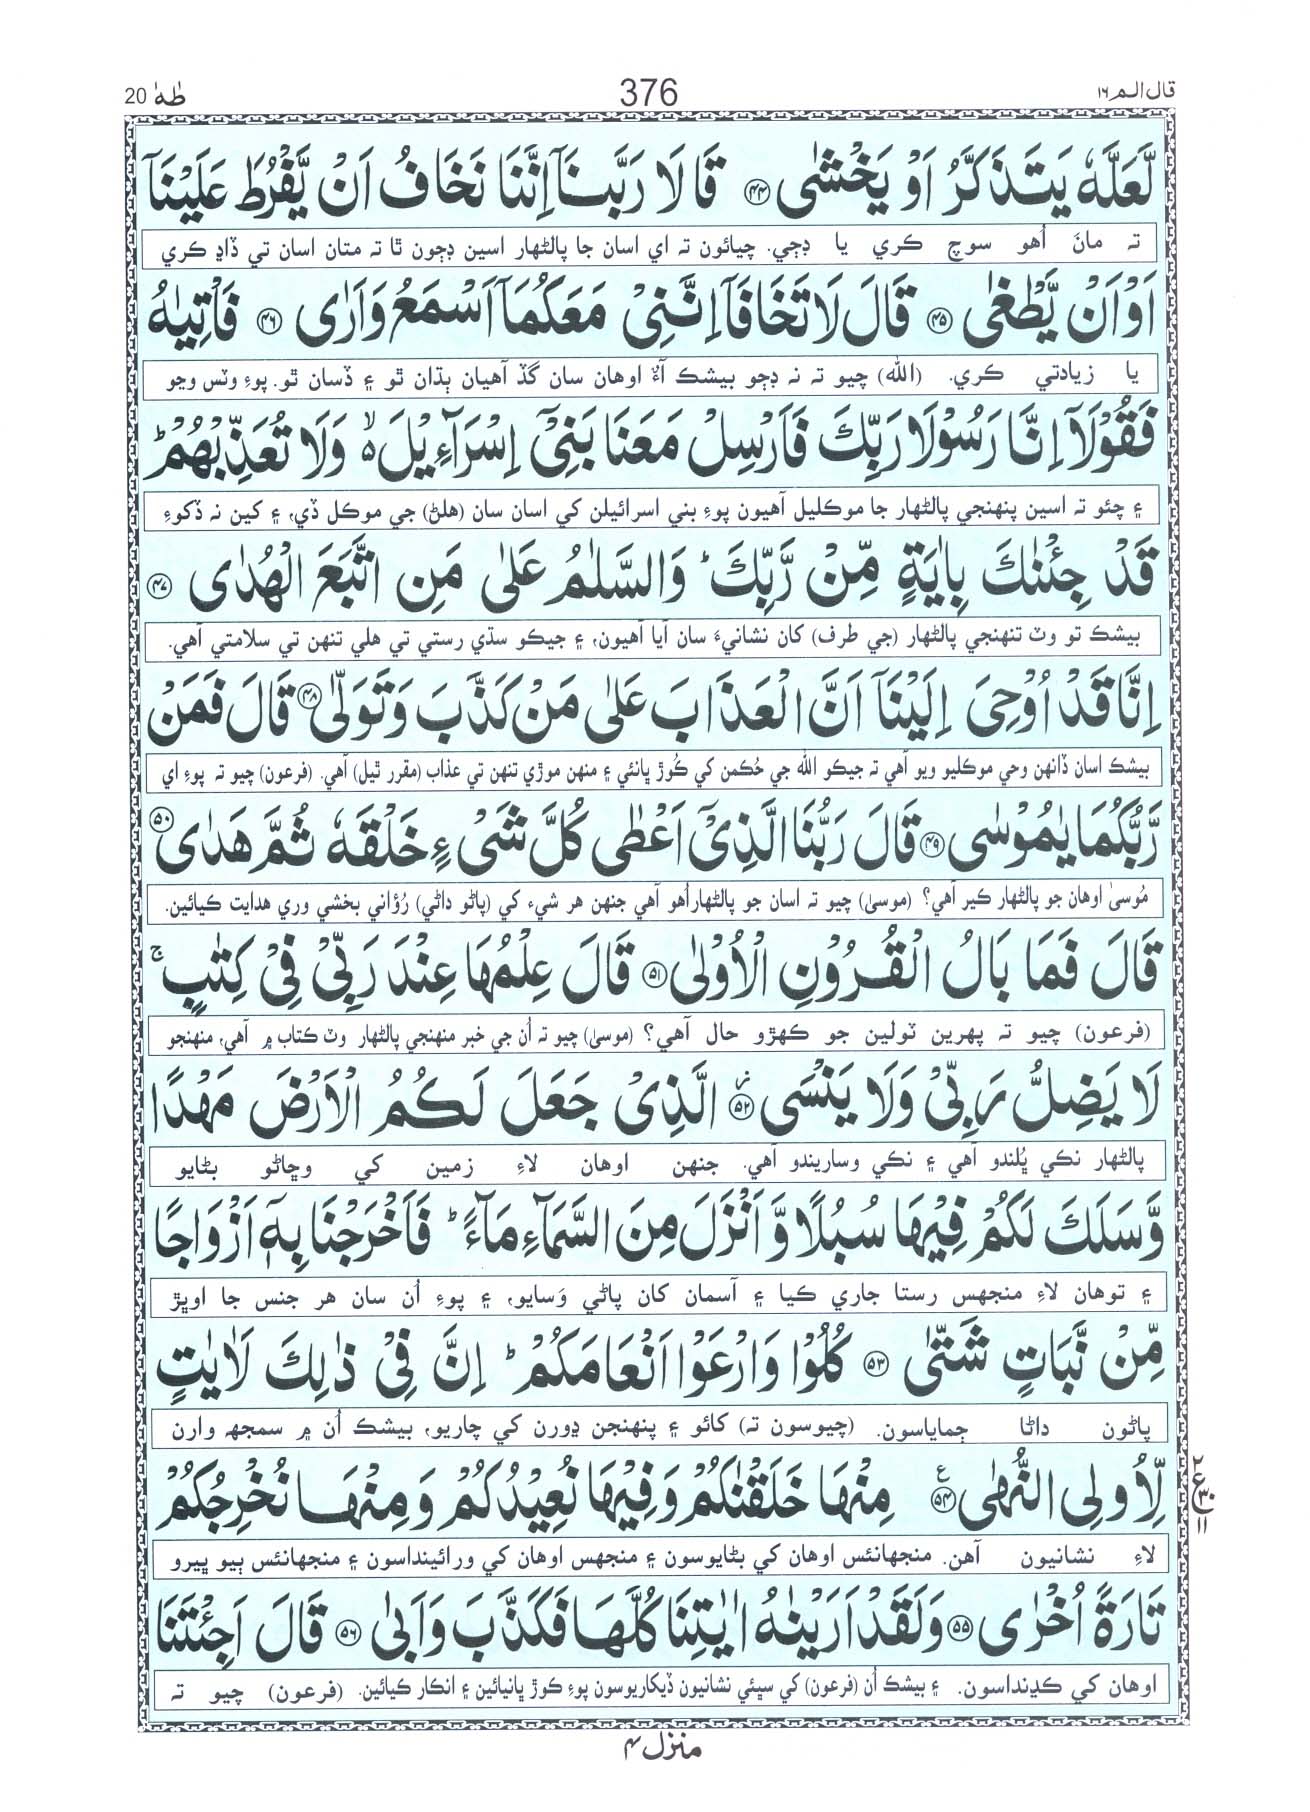 طٰهٰ 20
376
قال الم ١٦
لَّعَلَّهٗ يَتَذَكَّرُ اَوْ يَخْشٰى ﴿۴۴﴾ قَالَا رَبَّنَاۤ اِنَّنَا نَخَافُ اَنْ يَّفْرُطَ عَلَيْنَاۤ
تہ مانَ اُهو سوچ ڪري يا ڊڄي. چيائون تہ اي اسان جا پالڻهار اسين ڊڄون ٿا تہ متان اسان تي ڏاڍ ڪري
اَوْ اَنْ يَّطْغٰى ﴿۴۵﴾ قَالَ لَا تَخَافَاۤ اِنَّنِيْ مَعَكُمَاۤ اَسْمَعُ وَاَرٰى ﴿۴۶﴾ فَاْتِيٰهُ
يا زيادتي ڪري. (الله) چيو تہ نہ ڊڄو بيشڪ آءٌ اوهان سان گڏ آهيان ٻڌان ٿو ۽ ڏسان ٿو. پوءِ وٽس وڃو
فَقُوْلَاۤ اِنَّا رَسُوْلَا رَبِّكَ فَاَرْسِلْ مَعَنَا بَنِيْۤ اِسْرَآءِيْلَ ۙ۬ وَلَا تُعَذِّبْهُمْ ؕ
۽ چئو تہ اسين پنهنجي پالڻهار جا موڪليل آهيون پوءِ بني اسرائيلن کي اسان سان (هلڻ) جي موڪل ڏي، ۽ کين نہ ڏکوءِ
قَدْ جِئْنٰكَ بِاٰيَةٍ مِّنْ رَّبِّكَ ؕ وَالسَّلٰمُ عَلٰى مَنِ اتَّبَعَ الْهُدٰى ﴿۴۷﴾
بيشڪ تو وٽ تنهنجي پالڻهار (جي طرف) کان نشانيءَ سان آيا آهيون، ۽ جيڪو سڌي رستي تي هلي تنهن تي سلامتي آهي.
اِنَّا قَدْ اُوْحِيَ اِلَيْنَاۤ اَنَّ الْعَذَابَ عَلٰى مَنْ كَذَّبَ وَتَوَلّٰى ﴿۴۸﴾ قَالَ فَمَنْ
بيشڪ اسان ڏانهن وحي موڪليو ويو آهي تہ جيڪو الله جي حُڪمن کي ڪُوڙ ڀانئي ۽ منهن موڙي تنهن تي عذاب (مقرر ٿيل) آهي. (فرعون) چيو تہ پوءِ اي
رَّبُّكُمَا يٰمُوْسٰى ﴿۴۹﴾ قَالَ رَبُّنَا الَّذِيْۤ اَعْطٰى كُلَّ شَيْءٍ خَلْقَهٗ ثُمَّ هَدٰى ﴿۵۰﴾
مُوسىٰ اوهان جو پالڻهار ڪير آهي؟ (موسىٰ) چيو تہ اسان جو پالڻهار اُهو آهي جنهن هر شيء کي (پاڻو داڻي) رُؤاني بخشي وري هدايت ڪيائين.
قَالَ فَمَا بَالُ الْقُرُوْنِ الْاُوْلٰى ﴿۵۱﴾ قَالَ عِلْمُهَا عِنْدَ رَبِّيْ فِيْ كِتٰبٍ ۚ
(فرعون) چيو تہ پهرين ٽولين جو ڪهڙو حال آهي؟ (موسىٰ) چيو تہ اُن جي خبر منهنجي پالڻهار وٽ ڪتاب ۾ آهي، منهنجو
لَا يَضِلُّ رَبِّيْ وَلَا يَنْسَى ﴿۵۲﴾ الَّذِيْ جَعَلَ لَكُمُ الْاَرْضَ مَهْدًا
پالڻهار نڪي ڀُلندو آهي ۽ نڪي وساريندو آهي. جنهن اوهان لاءِ زمين کي وڇاڻو بڻايو
وَّسَلَكَ لَكُمْ فِيْهَا سُبُلًا وَّاَنْزَلَ مِنَ السَّمَآءِ مَآءً ؕ فَاَخْرَجْنَا بِهٖۤ اَزْوَاجًا
۽ توهان لاءِ منجهس رستا جاري ڪيا ۽ آسمان کان پاڻي وَسايو، ۽ پوءِ اُن سان هر جنس جا اوڀڙ
مِّنْ نَّبَاتٍ شَتّٰى ﴿۵۳﴾ كُلُوْا وَارْعَوْا اَنْعَامَكُمْ ؕ اِنَّ فِيْ ذٰلِكَ لَاٰيٰتٍ
پاڻون داڻا ڄماياسون. (چيوسون تہ) کائو ۽ پنهنجن ڍورن کي چاريو، بيشڪ اُن ۾ سمجهہ وارن
لِّاُولِي النُّهٰى ﴿۵۴﴾ مِنْهَا خَلَقْنٰكُمْ وَفِيْهَا نُعِيْدُكُمْ وَمِنْهَا نُخْرِجُكُمْ
لاءِ نشانيون آهن. منجهائنس اوهان کي بڻايوسون ۽ منجهس اوهان کي ورائينداسون ۽ منجهائنس ٻيو ڀيرو
تَارَةً اُخْرٰى ﴿۵۵﴾ وَلَقَدْ اَرَيْنٰهُ اٰيٰتِنَا كُلَّهَا فَكَذَّبَ وَاَبٰى ﴿۵۶﴾ قَالَ اَجِئْتَنَا
اوهان کي ڪڍنداسون. ۽ بيشڪ اُن (فرعون) کي سڀئي نشانيون ڏيکاريوسون پوءِ ڪوڙ ڀانيائين ۽ انڪار ڪيائين. (فرعون) چيو تہ
منزل ۴